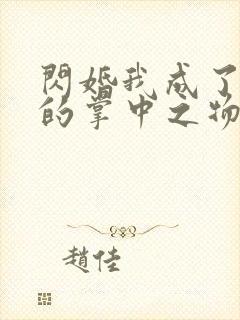 閃婚我成了
的掌中之物
趙佳